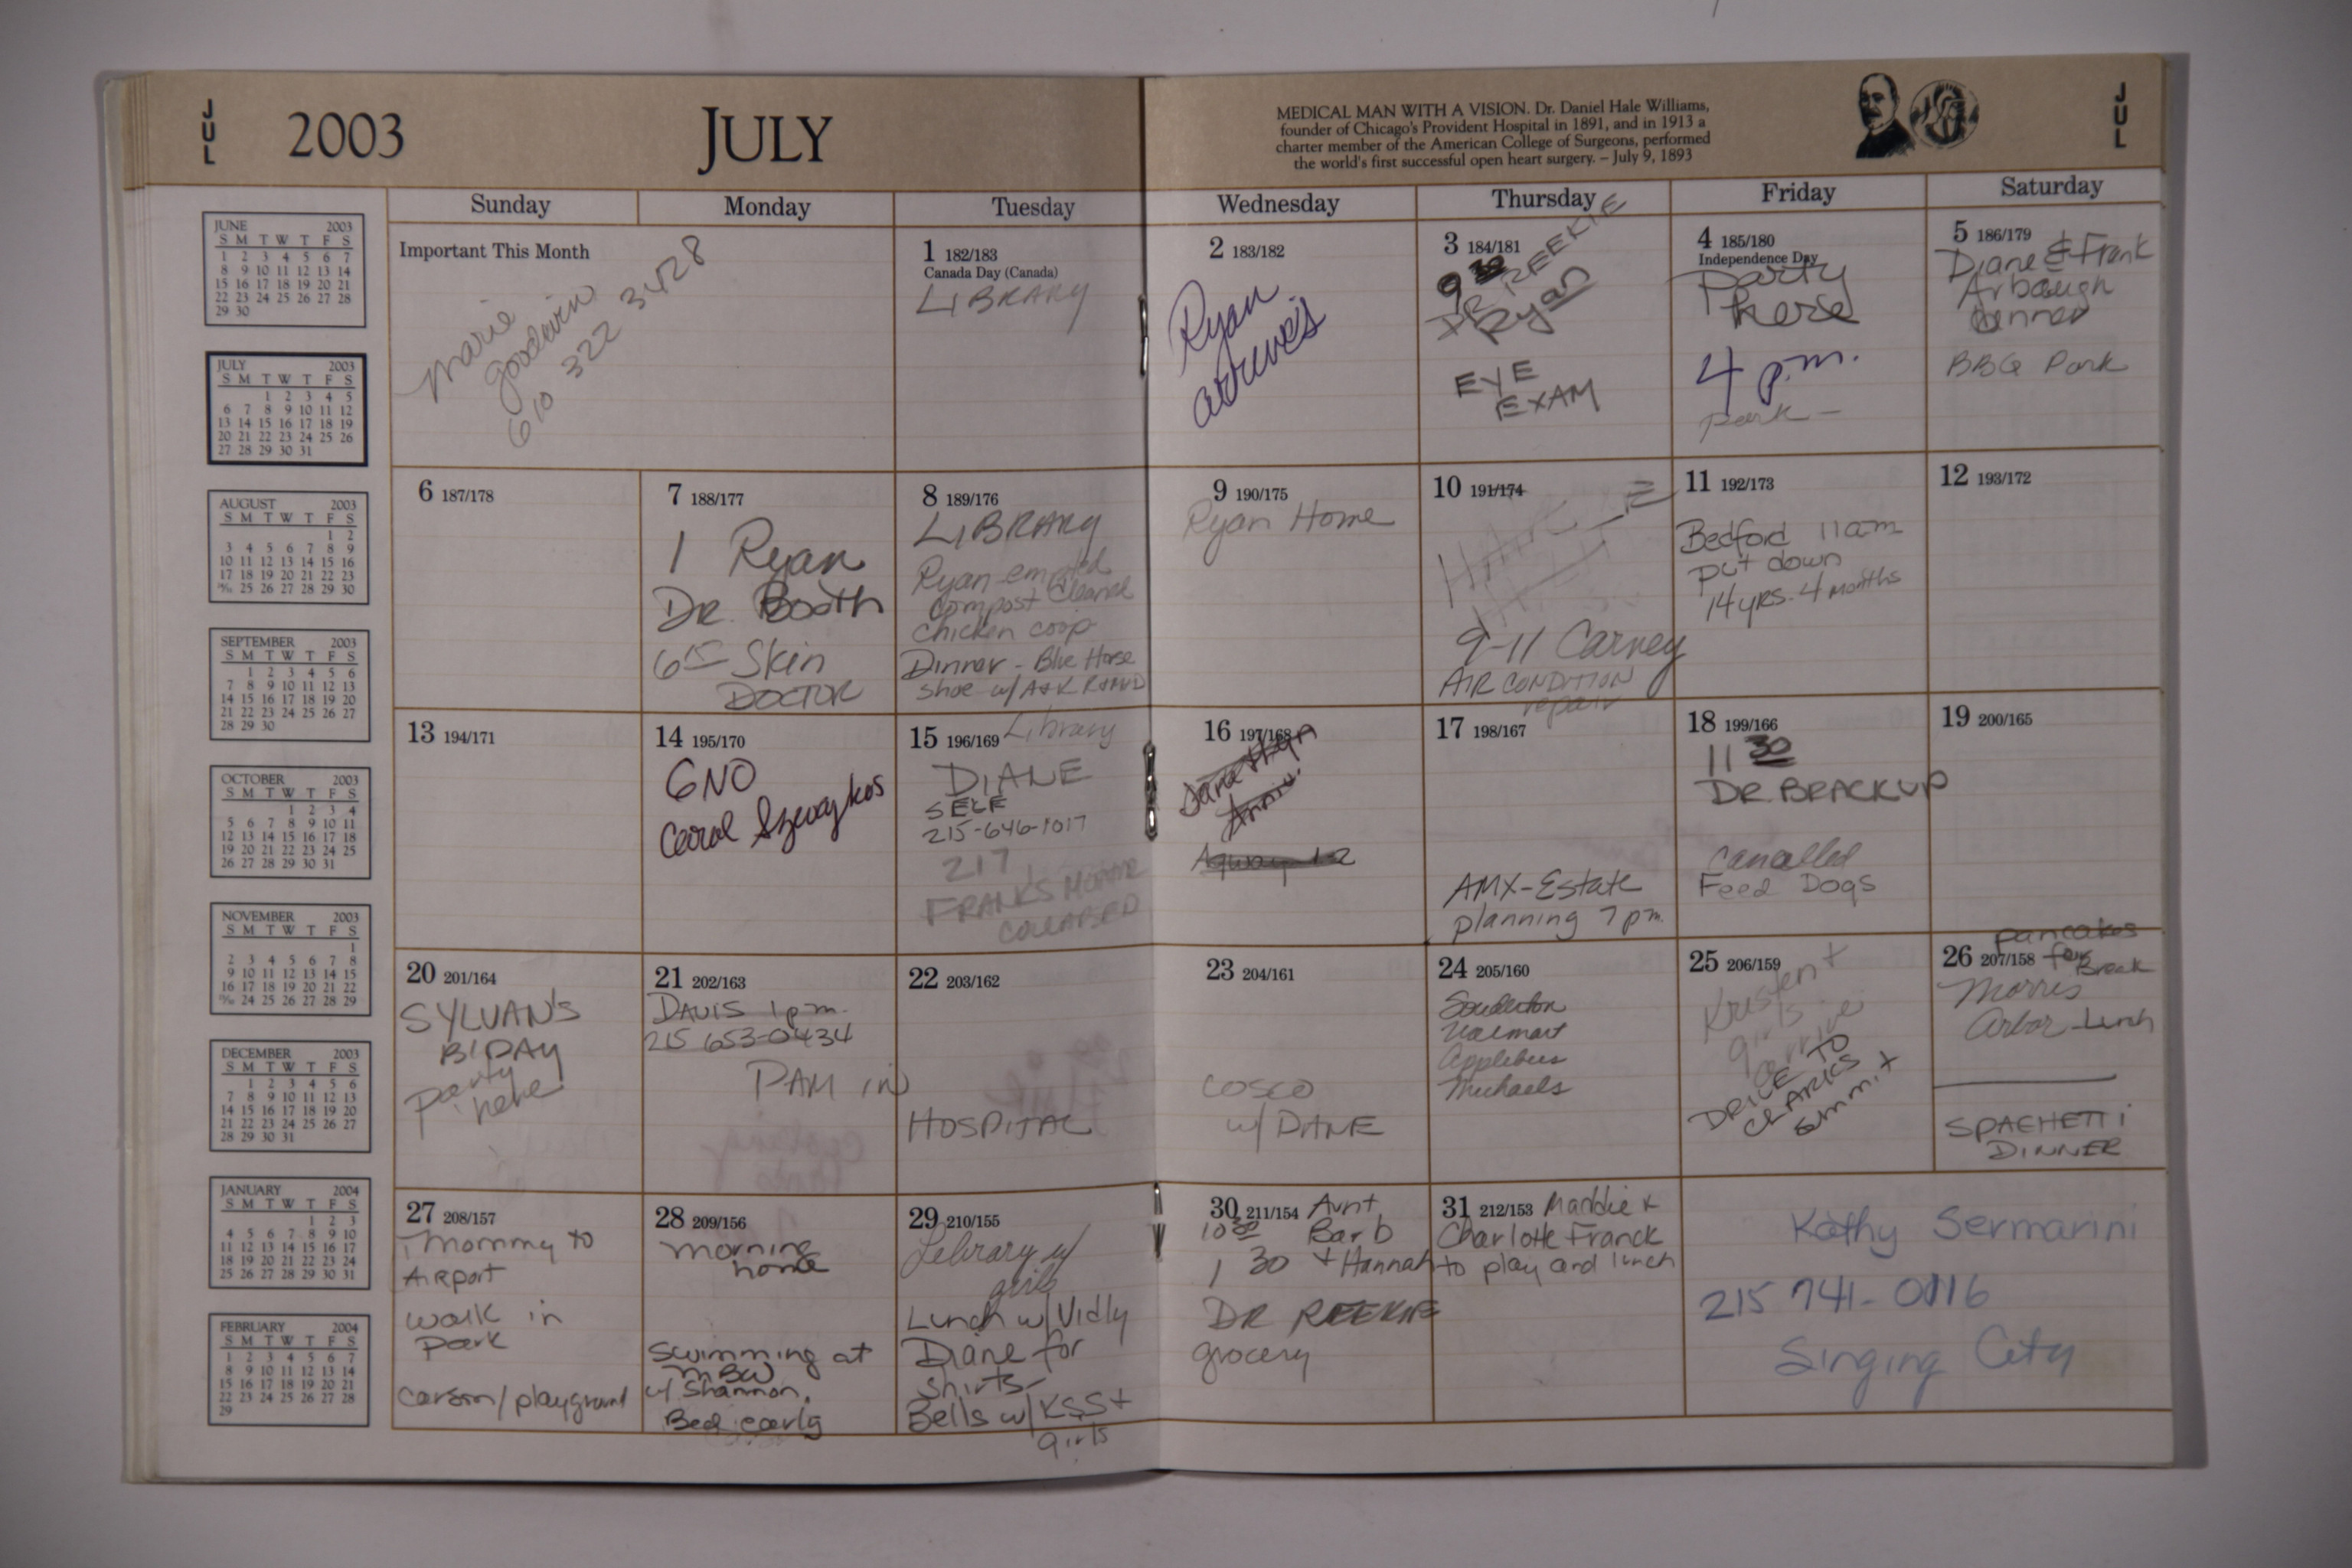 JUL
2003
JULY
MEDICAL MAN WITH A VISION. Dr. Daniel Hale Williams,
founder of Chicago's Provident Hospital in 1891, and in 1913 a
charter member of the American College of Surgeons, performed
the world's first successful open heart surgery. – July 9, 1893
JUL
Sunday
Monday
Tuesday
Wednesday
Thursday
Friday
Saturday
JUNE 2003
S M T W T F S
1 2 3 4 5 6 7
8 9 10 11 12 13 14
15 16 17 18 19 20 21
22 23 24 25 26 27 28
29 30
JULY 2003
S M T W T F S
1 2 3 4 5
6 7 8 9 10 11 12
13 14 15 16 17 18 19
20 21 22 23 24 25 26
27 28 29 30 31
AUGUST 2003
S M T W T F S
1 2
3 4 5 6 7 8 9
10 11 12 13 14 15 16
17 18 19 20 21 22 23
25 26 27 28 29 30
SEPTEMBER 2003
S M T W T F S
1 2 3 4 5 6
7 8 9 10 11 12 13
14 15 16 17 18 19 20
21 22 23 24 25 26 27
28 29 30
OCTOBER 2003
S M T W T F S
1 2 3 4
5 6 7 8 9 10 11
12 13 14 15 16 17 18
19 20 21 22 23 24 25
26 27 28 29 30 31
NOVEMBER 2003
S M T W T F S
1
2 3 4 5 6 7 8
9 10 11 12 13 14 15
16 17 18 19 20 21 22
24 25 26 27 28 29
DECEMBER 2003
S M T W T F S
1 2 3 4 5 6
7 8 9 10 11 12 13
14 15 16 17 18 19 20
21 22 23 24 25 26 27
28 29 30 31
JANUARY 2004
S M T W T F S
1 2 3
4 5 6 7 8 9 10
11 12 13 14 15 16 17
18 19 20 21 22 23 24
25 26 27 28 29 30 31
FEBRUARY 2004
S M T W T F S
1 2 3 4 5 6 7
8 9 10 11 12 13 14
15 16 17 18 19 20 21
22 23 24 25 26 27 28
29
Important This Month
Marie
Goodwin
610 322 3428
1 182/183
Canada Day (Canada)
LIBRARY
2 183/182
Ryan
arrives
3 184/181
9 30
DR REEKIE
Ryan
EYE
EXAM
4 185/180
Independence Day
Party
here
4 p.m.
park -
5 186/179
Diane & Frank
Arbaugh
dinner
BBQ Pork
6 187/178
7 188/177
1 Ryan
Dr. Booth
6 15 Skin
DOCTOR
8 189/176
LIBRARY
Ryan emptied
compost cleaned
chicken coop
Dinner - Blue Horse
shoe w/ A&K
9 190/175
Ryan Home
10 191/174
9-11 Carney
AIR CONDITION
repair
11 192/173
Bedford 11am
put down
14 yrs. 4 months
12 193/172
13 194/171
14 195/170
GNO
Carol Szwajkos
15 196/169 Library
DIANE
SELF
215-646-1017
217
FRANKS MOTHER
COLLAPSED
16 197/168
Anniv.
Agway 12
17 198/167
AMX-Estate
planning 7 pm.
18 199/166
11 30
DR. BRACKUP
Cancelled
Feed Dogs
19 200/165
20 201/164
SYLVAN'S
B'DAY
party
here
21 202/163
DAVIS 1 p.m.
215 653-0434
PAM in
22 203/162
HOSPITAL
23 204/161
COSCO
w/ DANE
24 205/160
Souderton
Walmart
Applebees
Michaels
25 206/159
Kristen +
girls
arrive
DRIVE TO
CLARKS
Summit
26 207/158
pancakes
for Break
Morris
Arbor-Lunch
SPAGHETTI
DINNER
27 208/157
Mommy to
AIRPORT
walk in
Park
Carson/playground
28 209/156
morning
home
Swimming at
MBW
w/ Shannon.
Bed early
29 210/155
Library w/
girls
Lunch w/ Vidly
Diane for
shirts-
Bells w/ KSS +
girls
30 211/154 Aunt
10 30 Barb
1 30 + Hannah
DR REEKIE
grocery
31 212/153 Maddie +
Charlotte Franck
to play and lunch
Kathy Sermarini
215 741-0116
Singing City